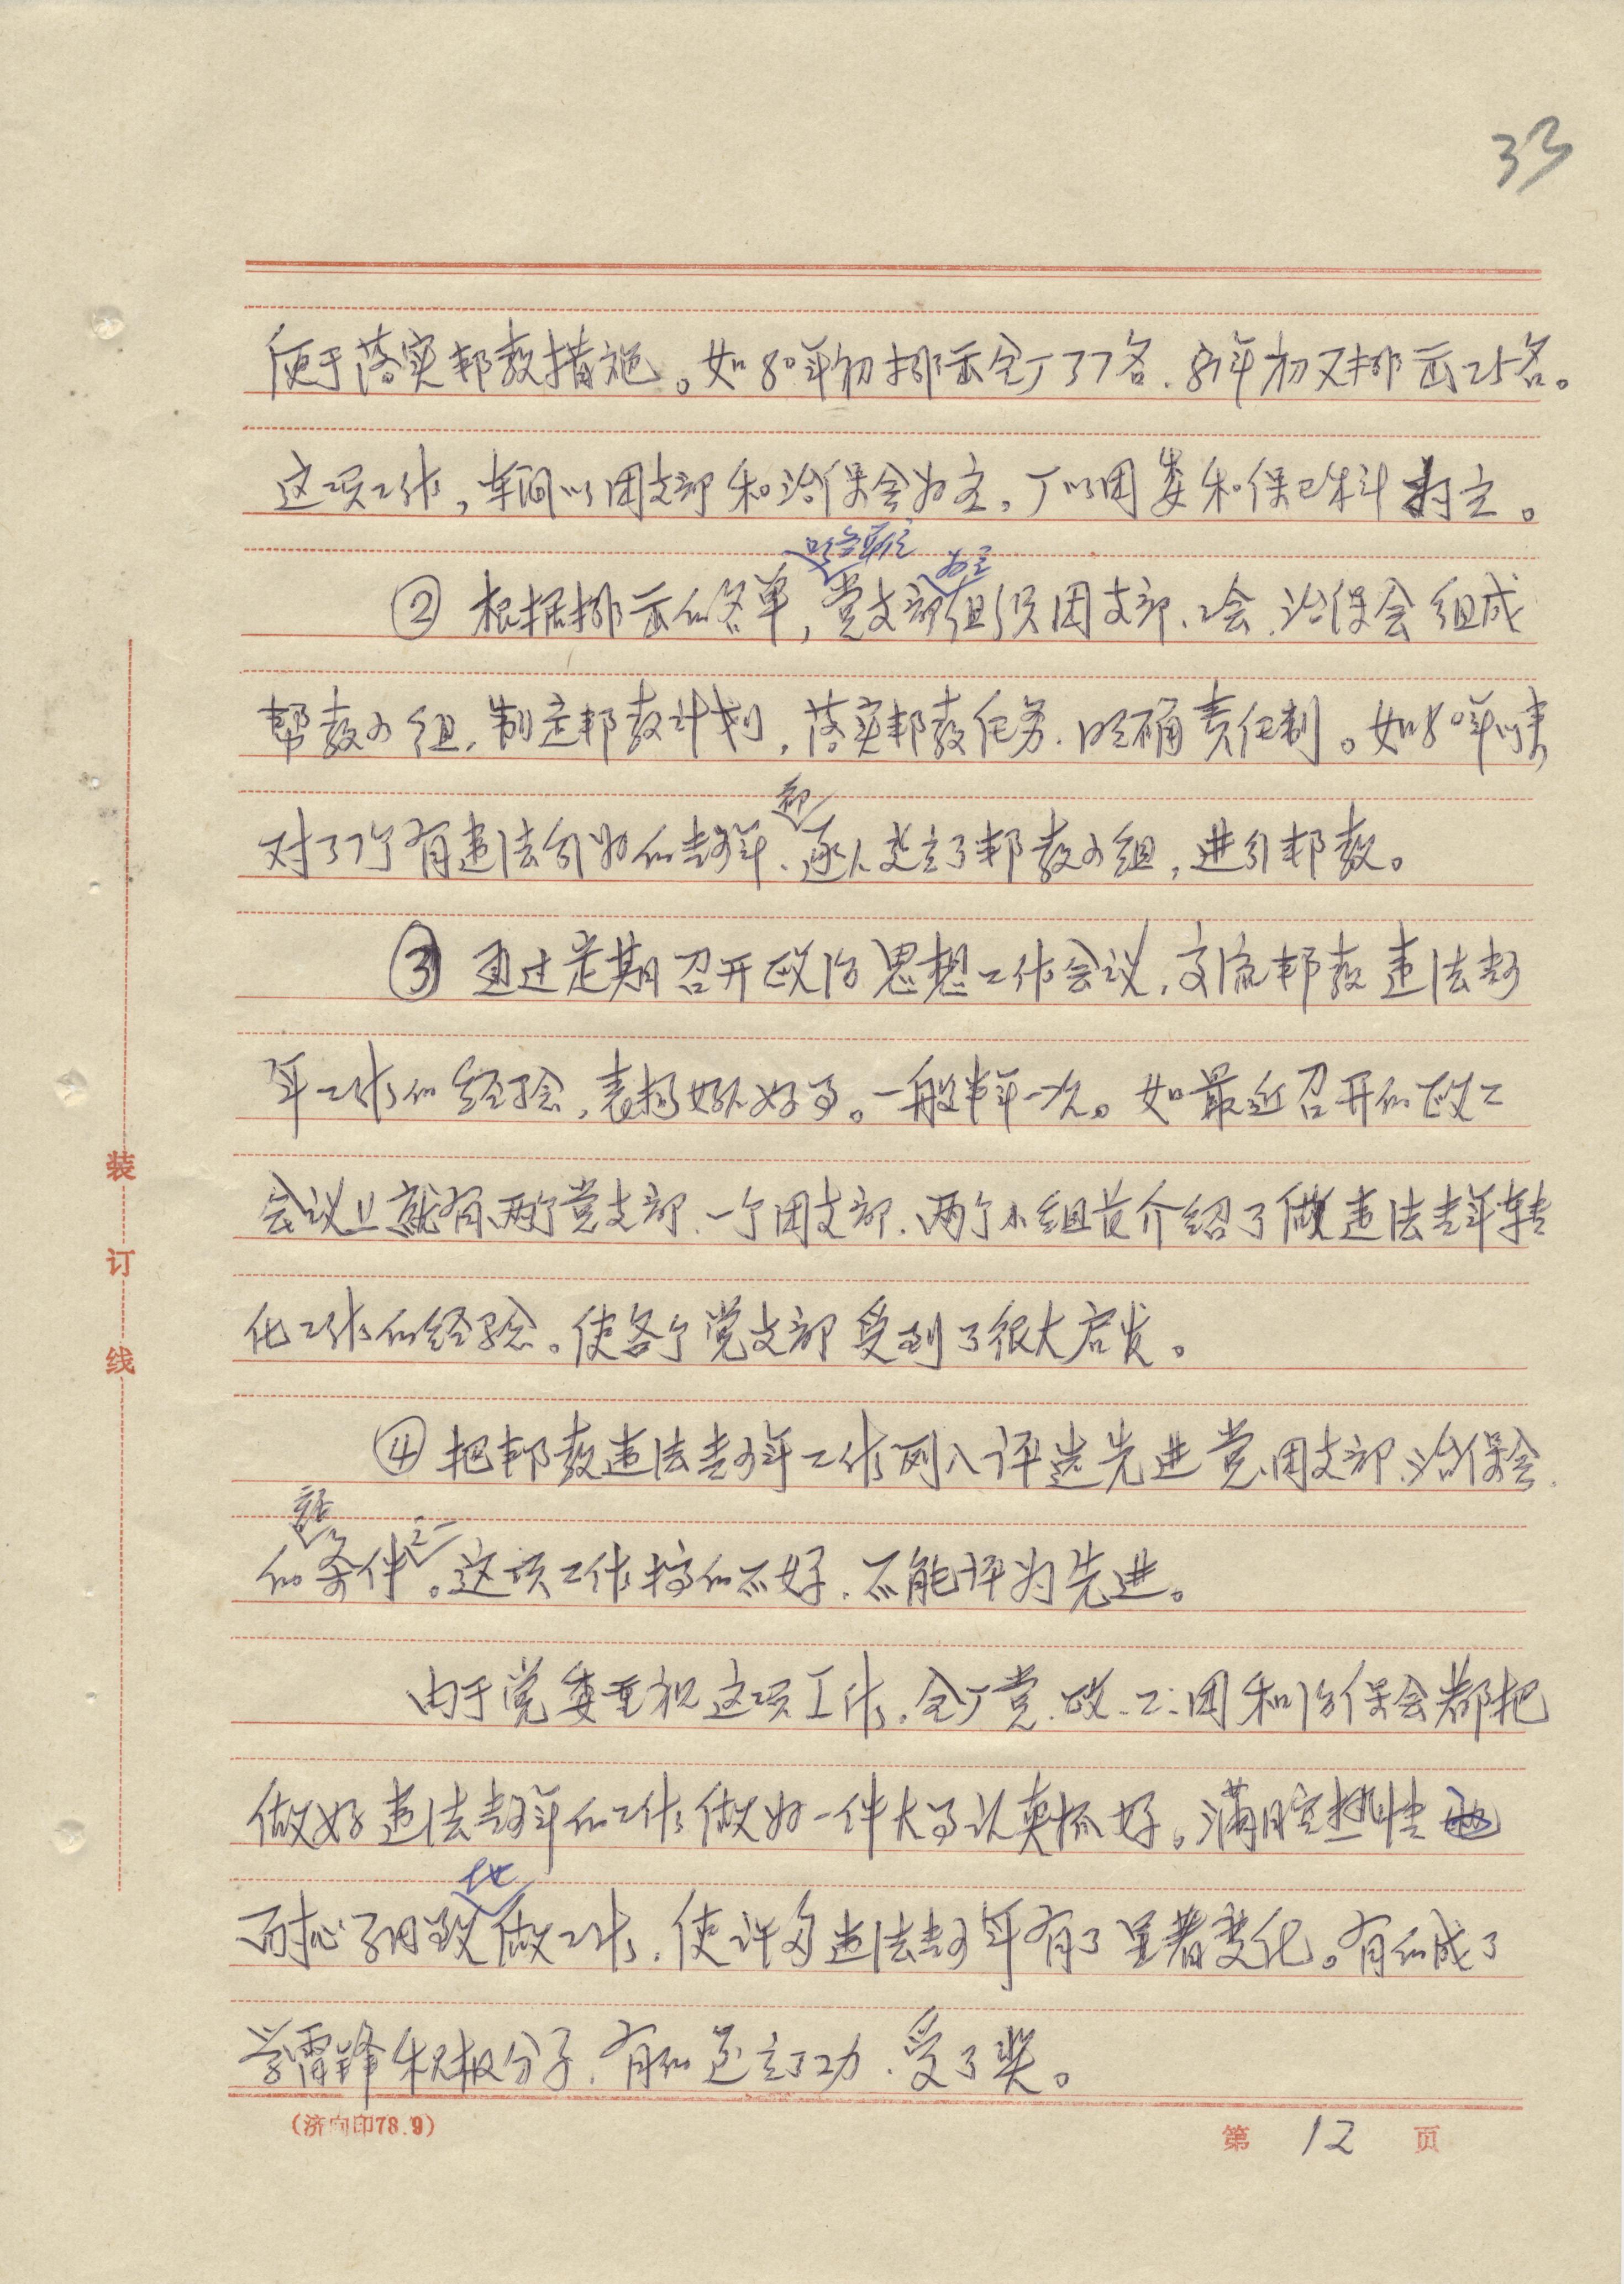 33
便于落实帮教措施。如80年初排出全厂37名、81年初又排出25名。
这项工作,车间以团支部和治保会为主,厂以团委和保卫科为主。
为主
②根据排出的名单,党支部组织团支部、工会、治保会组成
帮教小组,制定帮教计划,落实帮教任务、明确责任制。如80年以来
都
对37个有违法行为的青少年、逐人建立了帮教小组,进行帮教。
③通过定期召开政治思想工作会议,交流帮教违法青少
年工作的经验,表扬好人好事。一般半年一次。如最近召开的政工
会议上就有两个党支部、一个团支部、两个小组长介绍了做违法青年转
化工作的经验。使各个党支部受到了很大启发。
④把帮教违法青少年工作列入评选先进党、团支部、治保会
之一
的条件。这项工作搞的不好、不能评为先进。
由于党委重视这项工作,全厂党、政、工、团和治保会都把
做好违法青少年的工作做为一件大事认真抓好。满腔热情
地
耐心细致做工作,使许多违法青少年有了显著变化。有的成了
学雷锋积极分子,有的还立了功、受了奖。
装订线
(济向印78.9)
第 12 页